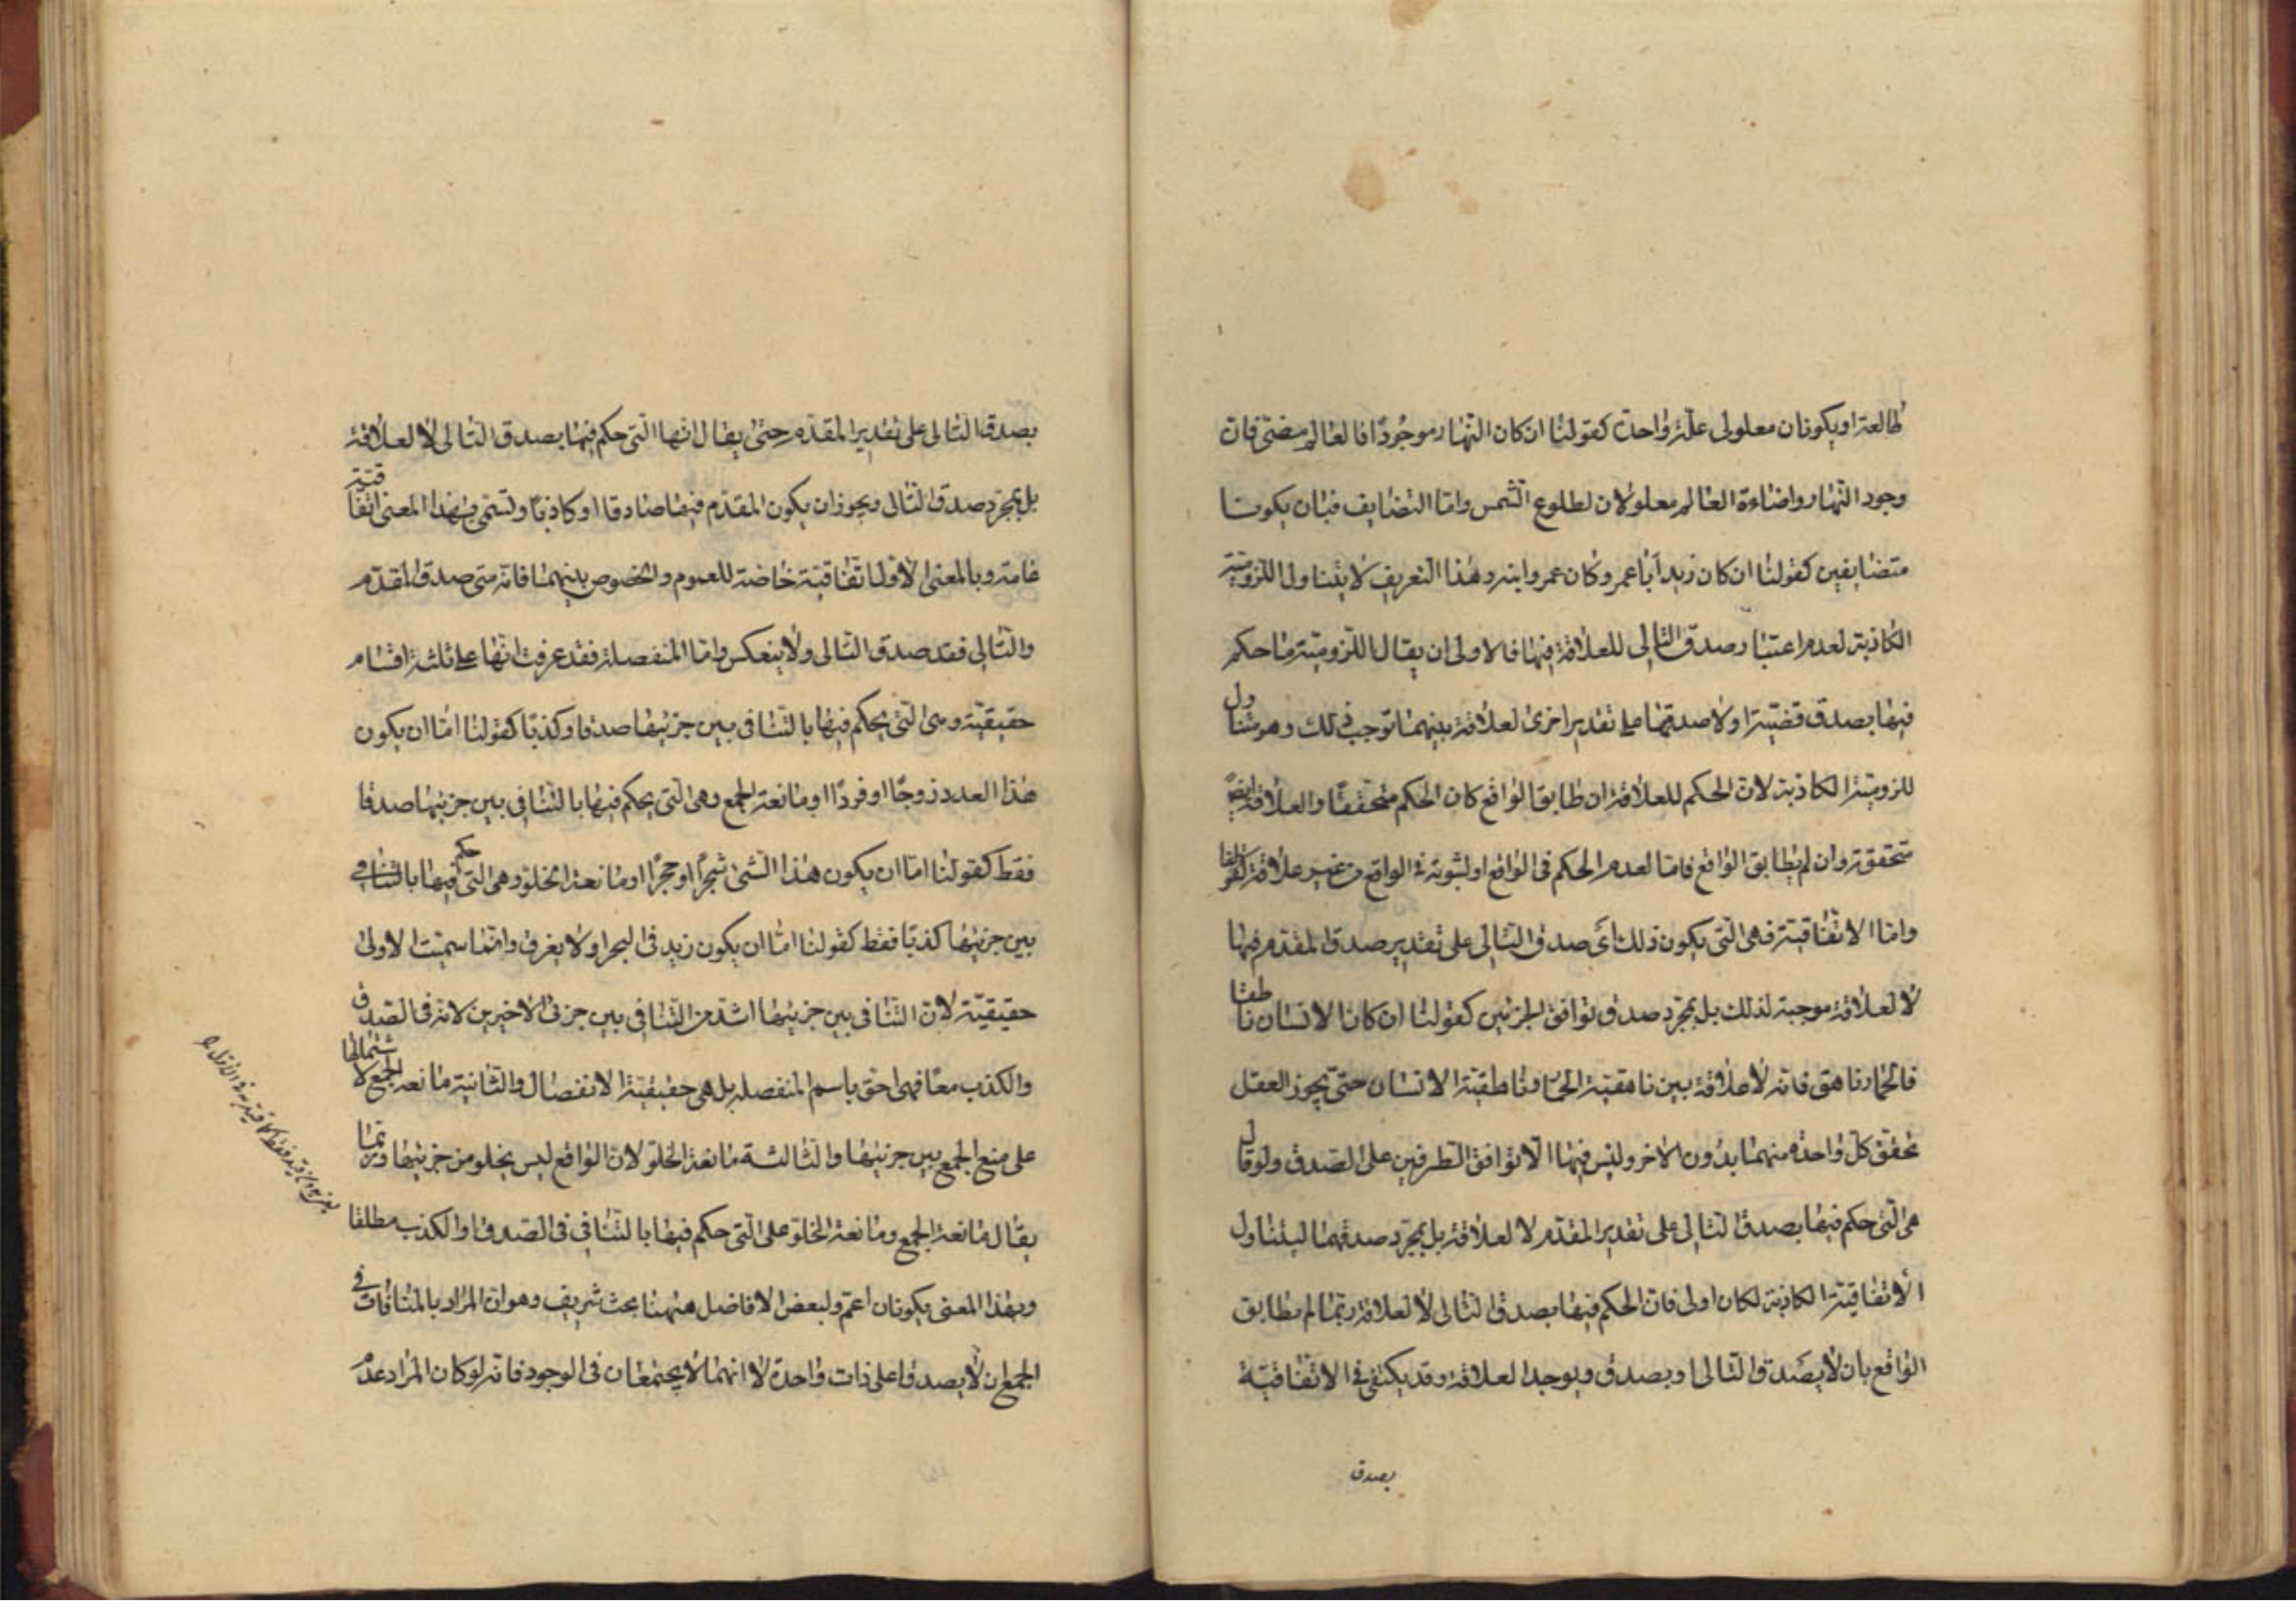 طالعة او يكونان معلولى علة واحدة كقولنا ان كان النهار موجودا فالعالم مضئ فان
وجود النهار واضاءة العالم معلولان لطلوع الشمس واما التضايف فبان يكونا
متضايفين كقولنا ان كان زيد ابا عمرو كان عمرو ابنه وهذا التعريف لا يتناول اللزومية
الكاذبة لعدم اعتبار صدق التالى للعلاقة فيها فالاولى ان يقال اللزومية ما حكم
فيها بصدق قضية اولا صدقها على تقدير اخرى لعلاقة بينهما توجب ذلك وهو متناول
للزومية الكاذبة لان الحكم للعلاقة ان طابق الواقع كان الحكم متحققا والعلاقة ايضا
متحققة وان لم يطابق الواقع فاما لعدم الحكم فى الواقع او لثبوته فى الواقع من غير علاقة
واما الاتفاقية فهى التى يكون ذلك اى صدق التالى على تقدير صدق المقدم فيها
لا لعلاقة موجبة لذلك بل بمجرد صدق توافق الجزئين كقولنا ان كان الانسان ناطقا
فالحمار ناهق فانه لا علاقة بين ناهقية الحمار وناطقية الانسان حتى يجوز العقل
تحقق كل واحدة منهما بدون الاخر وليس فيها الا توافق الطرفين على الصدق ولو قال
هى التى حكم فيها بصدق التالى على تقدير المقدم لا لعلاقة بل بمجرد صدقهما ليتناول
الاتفاقية الكاذبة لكان اولى فان الحكم فيها بصدق التالى لا لعلاقة ربما لم يطابق
الواقع بان لا يصدق التالى او يصدق ويوجد العلاقة وقد يكتفى فى الاتفاقية
بصدق
بصدق التالى على تقدير المقدم حتى يقال انها التى حكم فيها بصدق التالى لا لعلاقة
بل بمجرد صدق التالى ويجوز ان يكون المقدم فيها صادقا او كاذبا وتسمى بهذا المعنى اتفاقية
عامة وبالمعنى الاول اتفاقية خاصة للعموم والخصوص بينهما فانه متى صدق المقدم
والتالى فقد صدق التالى ولا ينعكس واما المنفصلة فقد عرفت انها على ثلثة اقسام
حقيقية وهى التى يحكم فيها بالتنافى بين جزئيها صدقا وكذبا كقولنا اما ان يكون
هذا العدد زوجا او فردا او مانعة الجمع وهى التى يحكم فيها بالتنافى بين جزئيها صدقا
فقط كقولنا اما ان يكون هذا الشئ شجرا او حجرا او مانعة الخلو وهى التى حكم فيها بالتنافى
بين جزئيها كذبا فقط كقولنا اما ان يكون زيد فى البحر او لا يغرق وانما سميت الاولى
حقيقية لان التنافى بين جزئيها اشد من التنافى بين جزئى الاخيرين لانه فى الصدق
والكذب معا فهى احق باسم المنفصلة بل هى حقيقية الانفصال والثانية مانعة الجمع لاشتمالها
على منع الجمع بين جزئيها والثالثة مانعة الخلو لان الواقع ليس يخلو من جزئيها وربما
يقال مانعة الجمع ومانعة الخلو على التى حكم فيها بالتنافى فى الصدق او الكذب مطلقا
وبهذا المعنى يكونان اعم ولبعض الافاضل ههنا بحث شريف وهو ان المراد بالمنافات فى
الجمع ان لا يصدقا على ذات واحدة لا انهما لا يجتمعان فى الوجود فانه لو كان المراد عدم